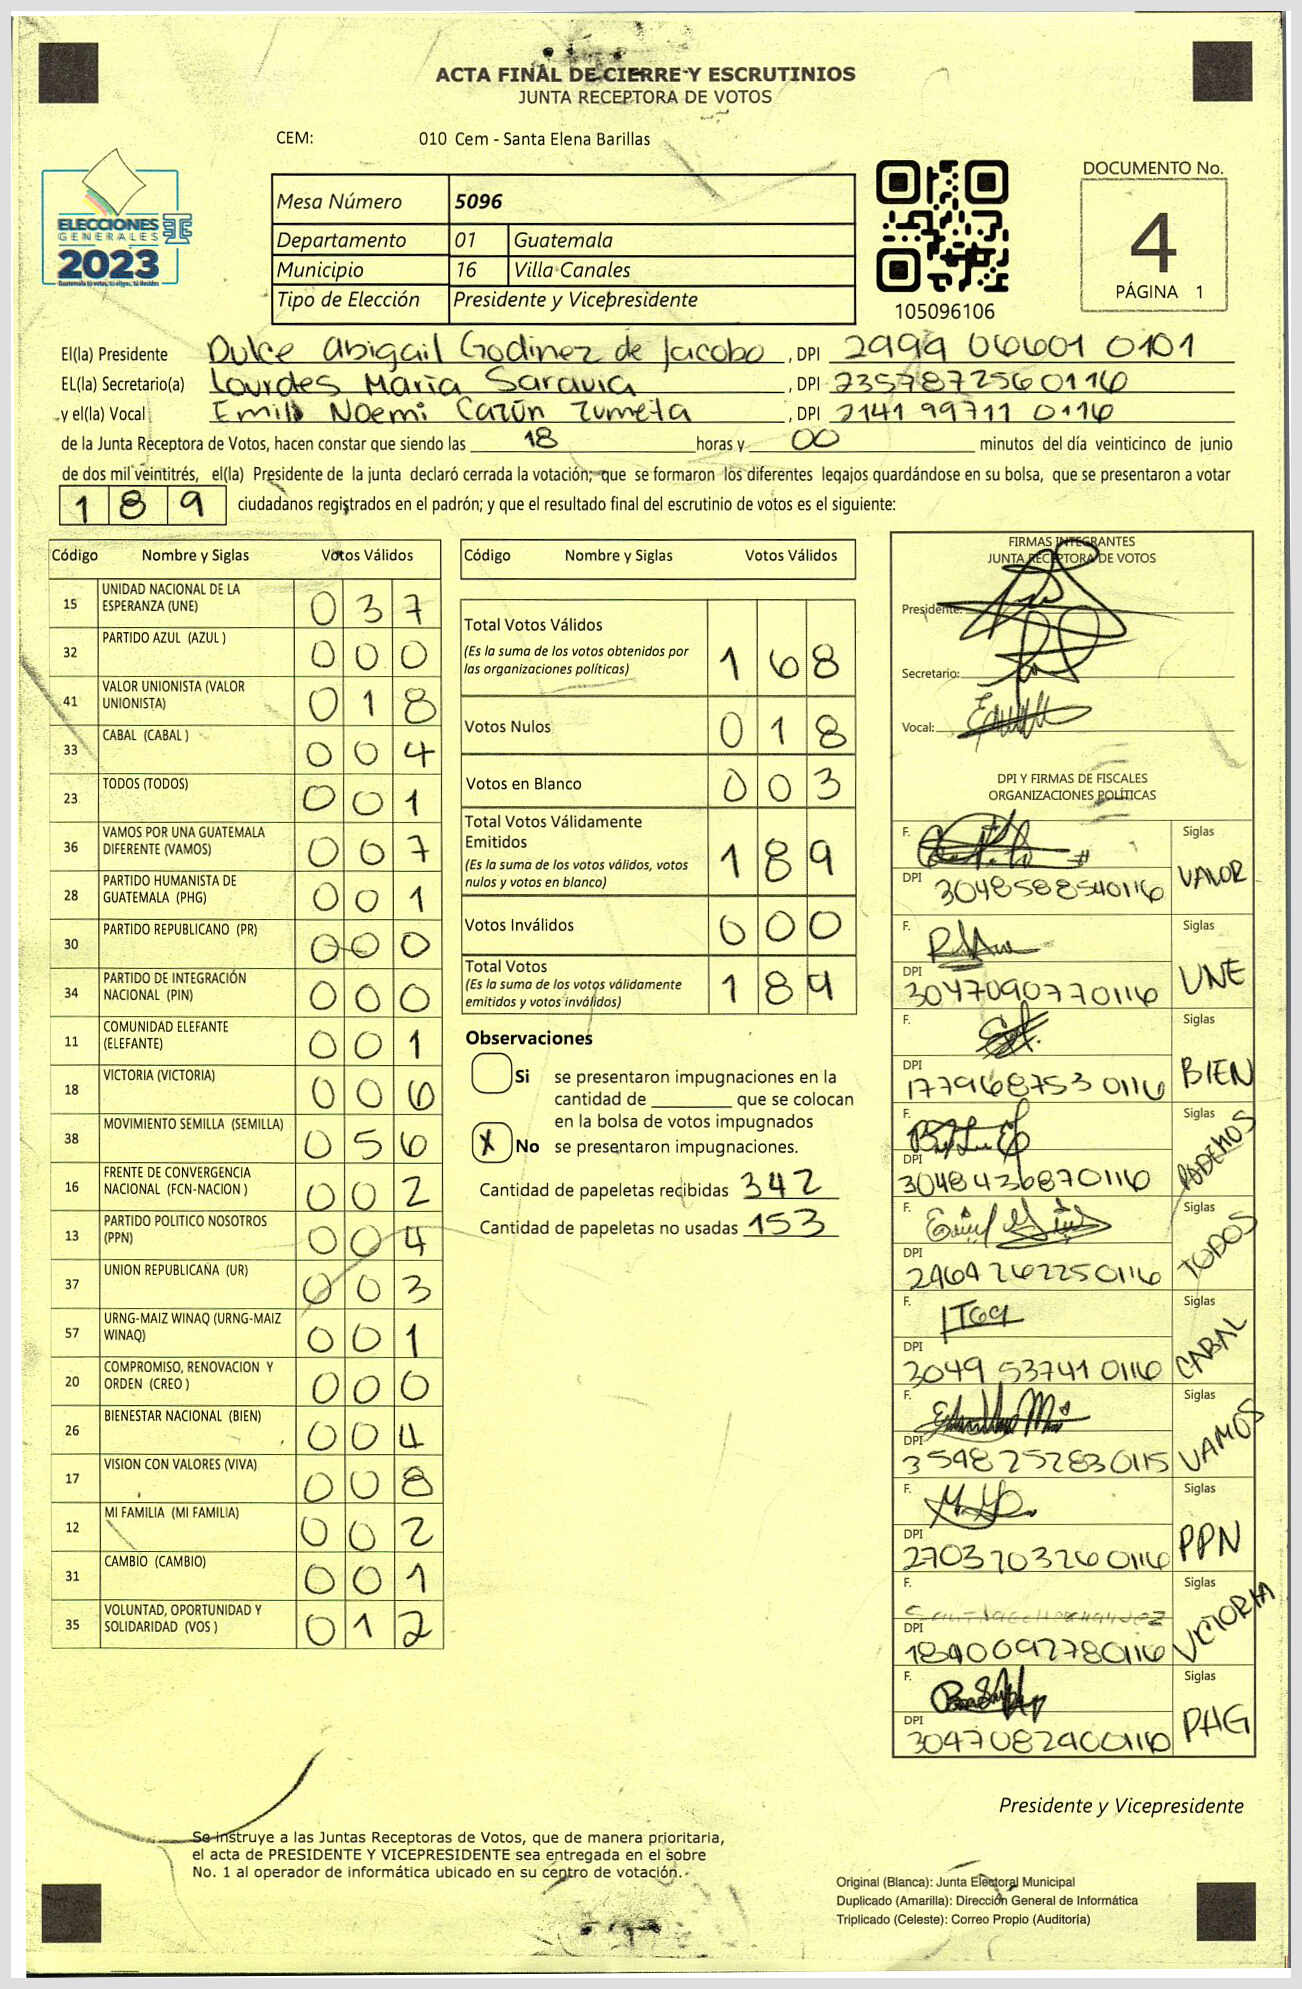 ACTA FINAL DE CIERRE Y ESCRUTINIOS
JUNTA RECEPTORA DE VOTOS
CEM: 010 Cem - Santa Elena Barillas
ELECCIONES
GENERALES
2023
Guatemala tú votas, tú eliges, tú decides
Mesa Número 5096
Departamento 01 Guatemala
Municipio 16 Villa Canales
Tipo de Elección Presidente y Vicepresidente
105096106
DOCUMENTO No.
4
PÁGINA 1
El(la) Presidente Dulce Abigail Godinez de Jacobo , DPI 2999 06601 0101
EL(la) Secretario(a) Lourdes Maria Saravia , DPI 2357872560116
y el(la) Vocal Emili Noemi Cazún Zumeta , DPI 2141 99711 0116
de la Junta Receptora de Votos, hacen constar que siendo las 18 horas y 00 minutos del día veinticinco de junio
de dos mil veintitrés, el(la) Presidente de la junta declaró cerrada la votación; que se formaron los diferentes legajos guardándose en su bolsa, que se presentaron a votar
189 ciudadanos registrados en el padrón; y que el resultado final del escrutinio de votos es el siguiente:
Código Nombre y Siglas Votos Válidos
15 UNIDAD NACIONAL DE LA ESPERANZA (UNE) 037
32 PARTIDO AZUL (AZUL ) 000
41 VALOR UNIONISTA (VALOR UNIONISTA) 018
33 CABAL (CABAL ) 004
23 TODOS (TODOS) 001
36 VAMOS POR UNA GUATEMALA DIFERENTE (VAMOS) 007
28 PARTIDO HUMANISTA DE GUATEMALA (PHG) 001
30 PARTIDO REPUBLICANO (PR) 000
34 PARTIDO DE INTEGRACIÓN NACIONAL (PIN) 000
11 COMUNIDAD ELEFANTE (ELEFANTE) 001
18 VICTORIA (VICTORIA) 006
38 MOVIMIENTO SEMILLA (SEMILLA) 056
16 FRENTE DE CONVERGENCIA NACIONAL (FCN-NACION ) 002
13 PARTIDO POLITICO NOSOTROS (PPN) 004
37 UNION REPUBLICANA (UR) 003
57 URNG-MAIZ WINAQ (URNG-MAIZ WINAQ) 001
20 COMPROMISO, RENOVACION Y ORDEN (CREO ) 000
26 BIENESTAR NACIONAL (BIEN) 004
17 VISION CON VALORES (VIVA) 008
12 MI FAMILIA (MI FAMILIA) 002
31 CAMBIO (CAMBIO) 001
35 VOLUNTAD, OPORTUNIDAD Y SOLIDARIDAD (VOS ) 012
Código Nombre y Siglas Votos Válidos
Total Votos Válidos 168
(Es la suma de los votos obtenidos por
las organizaciones políticas)
Votos Nulos 018
Votos en Blanco 003
Total Votos Válidamente
Emitidos 189
(Es la suma de los votos válidos, votos
nulos y votos en blanco)
Votos Inválidos 000
Total Votos 189
(Es la suma de los votos válidamente
emitidos y votos inválidos)
Observaciones
Si se presentaron impugnaciones en la
cantidad de ________ que se colocan
en la bolsa de votos impugnados
X No se presentaron impugnaciones.
Cantidad de papeletas recibidas 342
Cantidad de papeletas no usadas 153
FIRMAS INTEGRANTES
JUNTA RECEPTORA DE VOTOS
Presidente:
Secretario:
Vocal:
DPI Y FIRMAS DE FISCALES
ORGANIZACIONES POLÍTICAS
F. Siglas
DPI 3048588540116 VALOR
F. Siglas
DPI 3047090770116 UNE
F. Siglas
DPI 1779687530116 BIEN
F. Siglas
DPI 3048436870116 PODEMOS
F. Siglas
DPI 2464262250116 TODOS
F. Siglas
DPI 3049 53741 0116 CABAL
F. Siglas
DPI 3598252830115 VAMOS
F. Siglas
DPI 2703703260116 PPN
F. Siglas
DPI 1840092780116 VICTORIA
F. Siglas
DPI 3047082900116 PHG
Presidente y Vicepresidente
Se instruye a las Juntas Receptoras de Votos, que de manera prioritaria,
el acta de PRESIDENTE Y VICEPRESIDENTE sea entregada en el sobre
No. 1 al operador de informática ubicado en su centro de votación.
Original (Blanca): Junta Electoral Municipal
Duplicado (Amarilla): Dirección General de Informática
Triplicado (Celeste): Correo Propio (Auditoría)